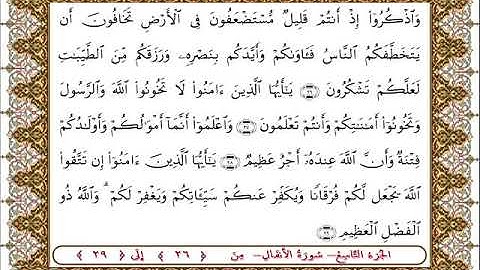 وَٱذْكُرُوٓا۟ إِذْ أَنتُمْ قَلِيلٌ مُّسْتَضْعَفُونَ فِى ٱلْأَرْضِ تَخَافُونَ أَن
يَتَخَطَّفَكُمُ ٱلنَّاسُ فَـَٔاوَىٰكُمْ وَأَيَّدَكُم بِنَصْرِهِۦ وَرَزَقَكُم مِّنَ ٱلطَّيِّبَٰتِ
لَعَلَّكُمْ تَشْكُرُونَ ۝٢٦ يَٰٓأَيُّهَا ٱلَّذِينَ ءَامَنُوا۟ لَا تَخُونُوا۟ ٱللَّهَ وَٱلرَّسُولَ
وَتَخُونُوٓا۟ أَمَٰنَٰتِكُمْ وَأَنتُمْ تَعْلَمُونَ ۝٢٧ وَٱعْلَمُوٓا۟ أَنَّمَآ أَمْوَٰلُكُمْ وَأَوْلَٰدُكُمْ
فِتْنَةٌ وَأَنَّ ٱللَّهَ عِندَهُۥٓ أَجْرٌ عَظِيمٌ ۝٢٨ يَٰٓأَيُّهَا ٱلَّذِينَ ءَامَنُوٓا۟ إِن تَتَّقُوا۟
ٱللَّهَ يَجْعَل لَّكُمْ فُرْقَانًا وَيُكَفِّرْ عَنكُمْ سَيِّـَٔاتِكُمْ وَيَغْفِرْ لَكُمْ ۗ وَٱللَّهُ ذُو
ٱلْفَضْلِ ٱلْعَظِيمِ ۝٢٩
الجزء التاسع – سورة الأنفال – من ﴿ ٢٦ ﴾ إلى ﴿ ٢٩ ﴾